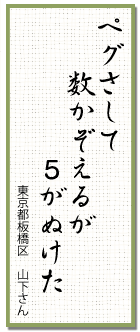 ペグさして
数かぞえるが
5がぬけた
東京都板橋区　山下さん